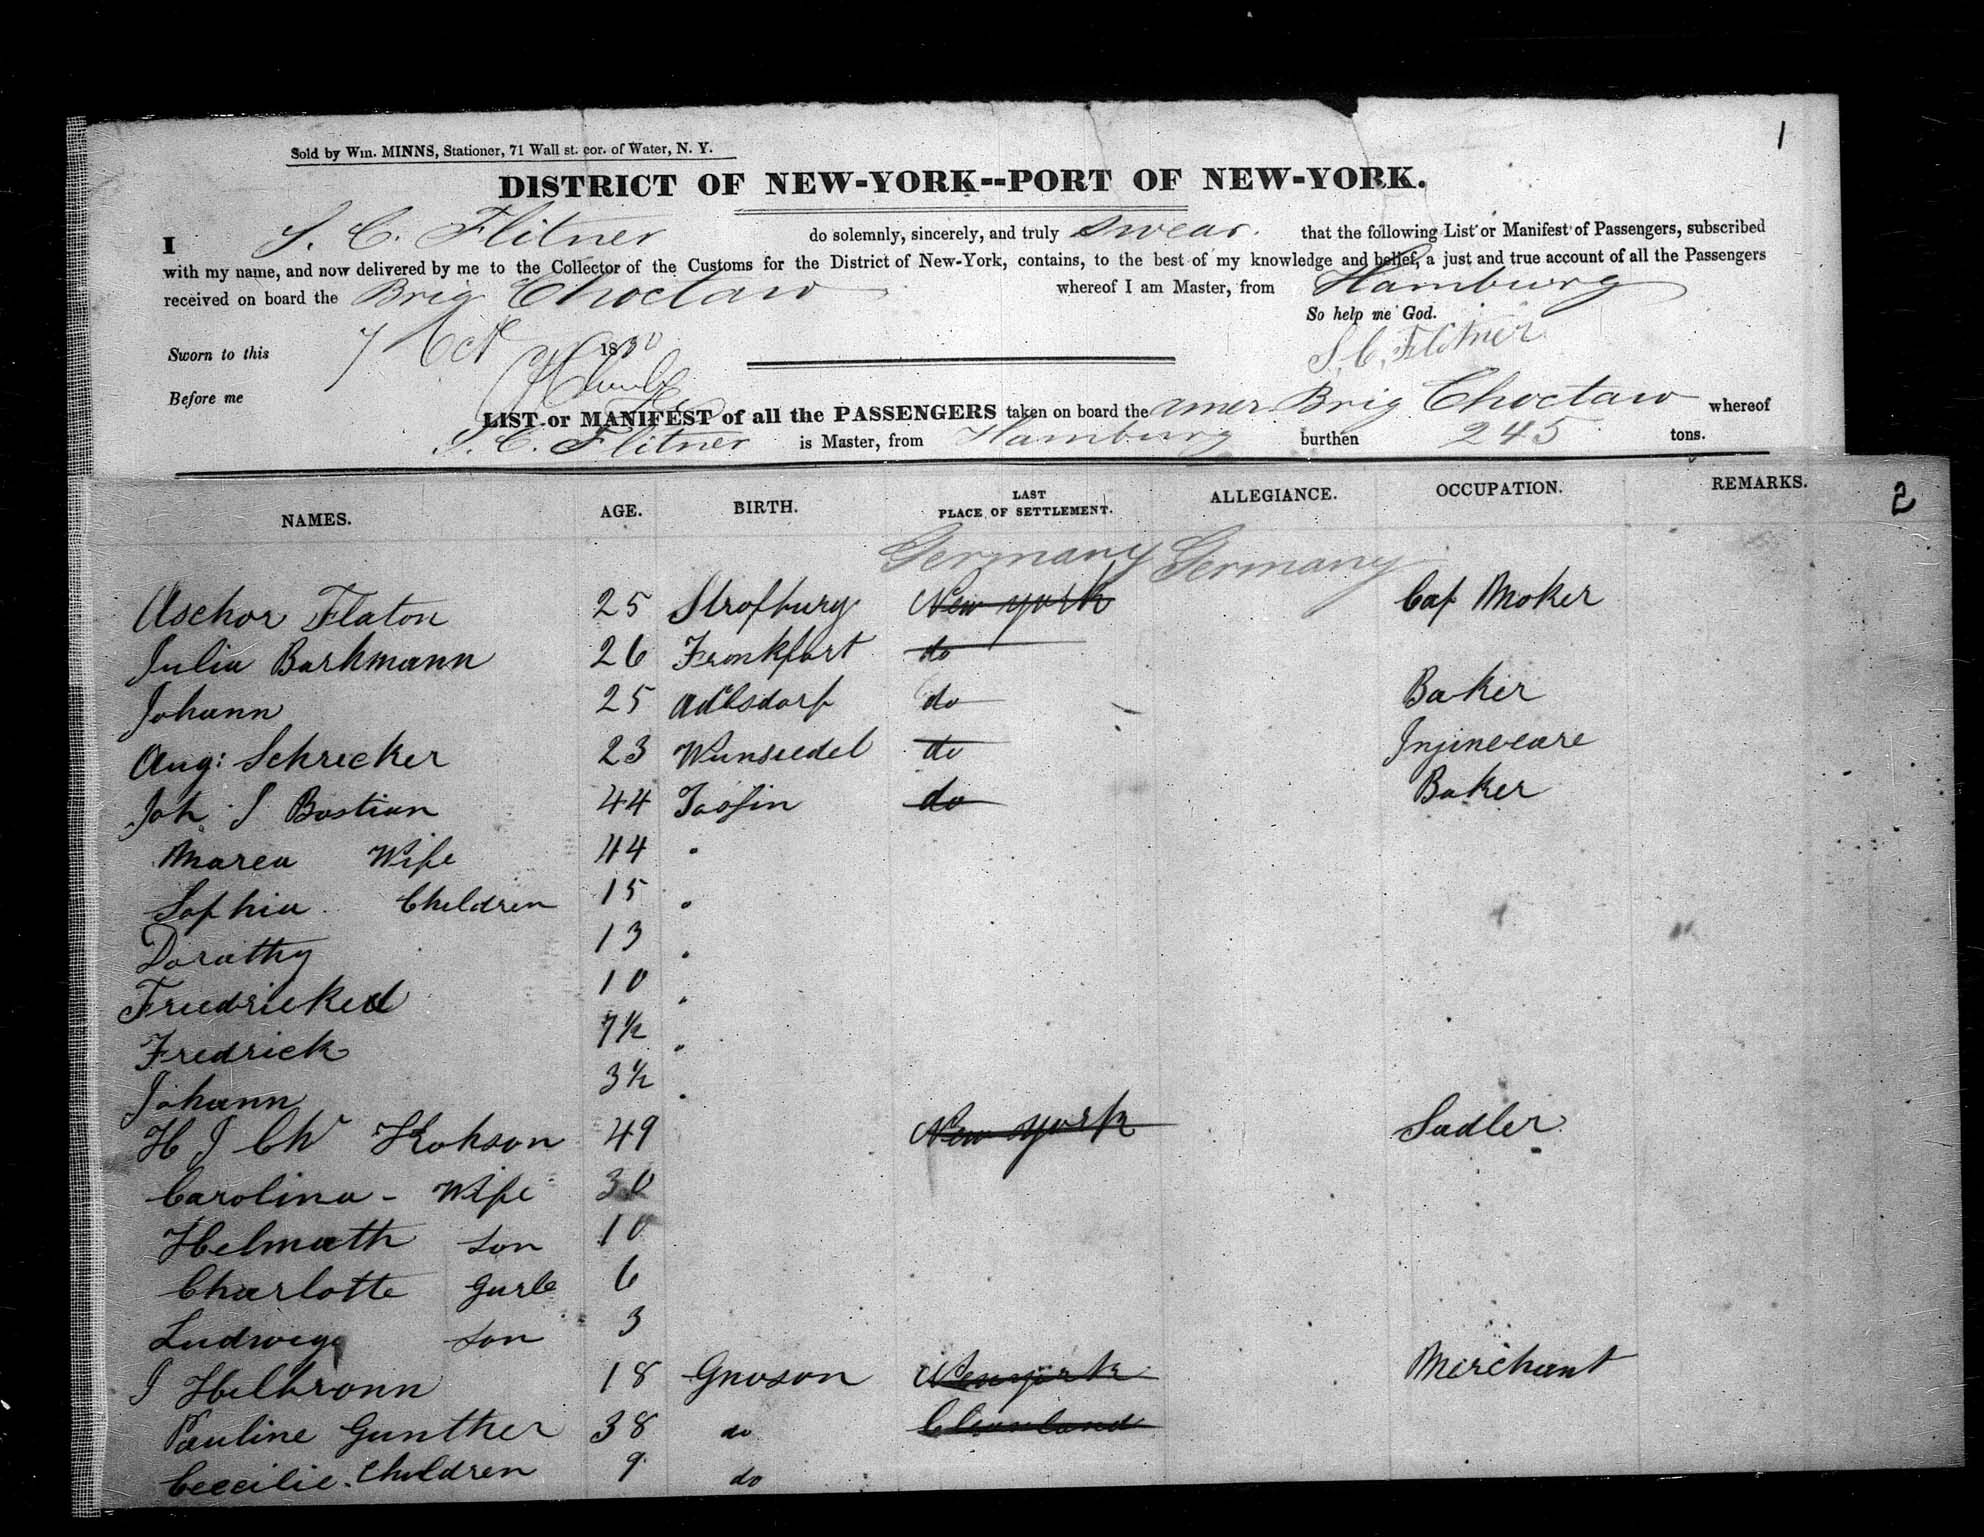 1
Sold by Wm. MINNS, Stationer, 71 Wall st. cor. of Water, N. Y.
DISTRICT OF NEW-YORK--PORT OF NEW-YORK.
I S. C. Flitner do solemnly, sincerely, and truly swear. that the following List or Manifest of Passengers, subscribed
with my name, and now delivered by me to the Collector of the Customs for the District of New-York, contains, to the best of my knowledge and belief, a just and true account of all the Passengers
received on board the Brig Choctaw whereof I am Master, from Hamburg
So help me God.
Sworn to this 7 Oct 18 S. C. Flitner
Before me
LIST or MANIFEST of all the PASSENGERS taken on board the Amer Brig Choctaw whereof
S. C. Flitner is Master, from Hamburg burthen 245 tons.
NAMES. AGE. BIRTH. LAST PLACE OF SETTLEMENT. ALLEGIANCE. OCCUPATION. REMARKS. 2
Germany Germany
Aschor Flaton 25 New York Cap Moker
Julia Barkmann 26 Frankfort do
Johann 25 Adlsdorf do Baker
Aug: Schricker 23 Wunseedel do Injineeare
Joh. S Bastian 44 do Baker
Marea Wife 44
Sophia Children 15
Dorathy 13
Friedricked 10
Fredrick 7½
Johann 3½
H J Chr Hokson 49 New York Sadler
Carolina - Wife 30
Helmuth son 10
Charlotte Gurle 6
Ludweg son 3
J Helbronn 18 Gnoson New york Merchant
Pauline Gunther 38 do
Ceecilie. Children 9 do